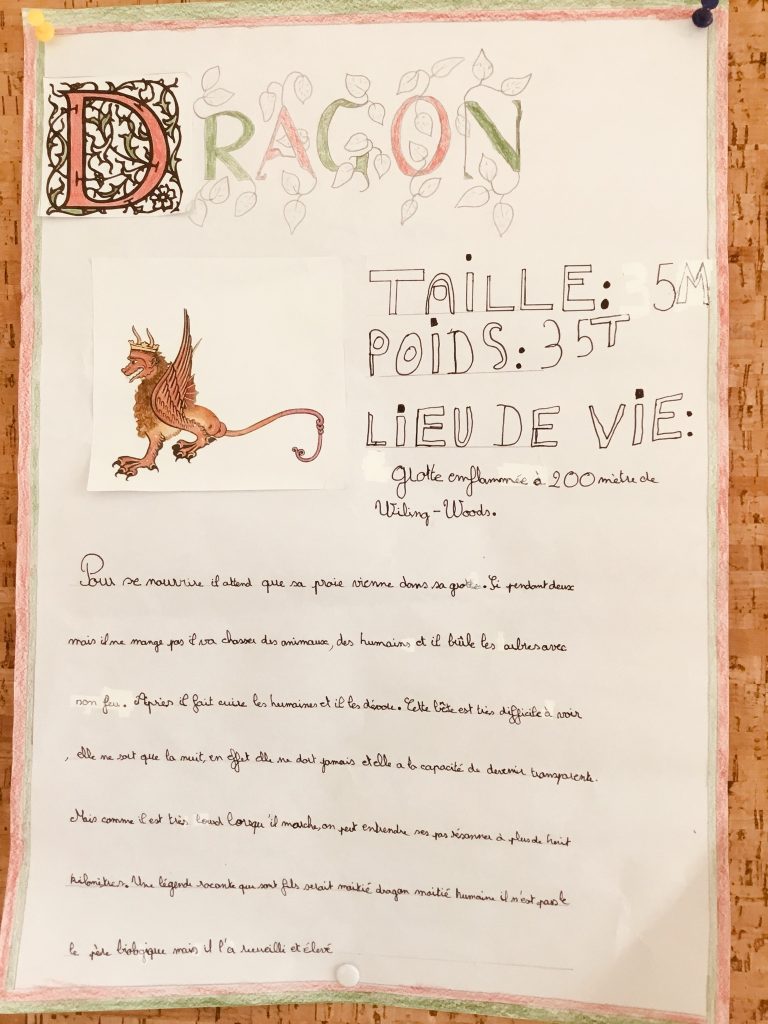 DRAGON
TAILLE: 35M
POIDS: 35T
LIEU DE VIE:
Grotte enflammée à 200 mètre de
Wiling-Woods.
Pour se nourrire il attend que sa proie vienne dans sa grotte. Si pendant deux
mais il ne mange pas il va chasser des animaux, des humains et il brûle les arbres avec
son feu. Après il fait cuire les humaines et il les dévore. Cette bête est très difficile à voir
, elle ne sort que la nuit, en effet elle ne dort jamais et elle a la capacité de devenir transparente.
Mais comme il est très lourd lorsqu'il marche, on peut entendre ses pas résonner à plus de huit
kilomètres. Une légende raconte que sont fils serait moitié dragon moitié humaine il n'est pas le
le père biologique mais il l'a recueilli et élevé